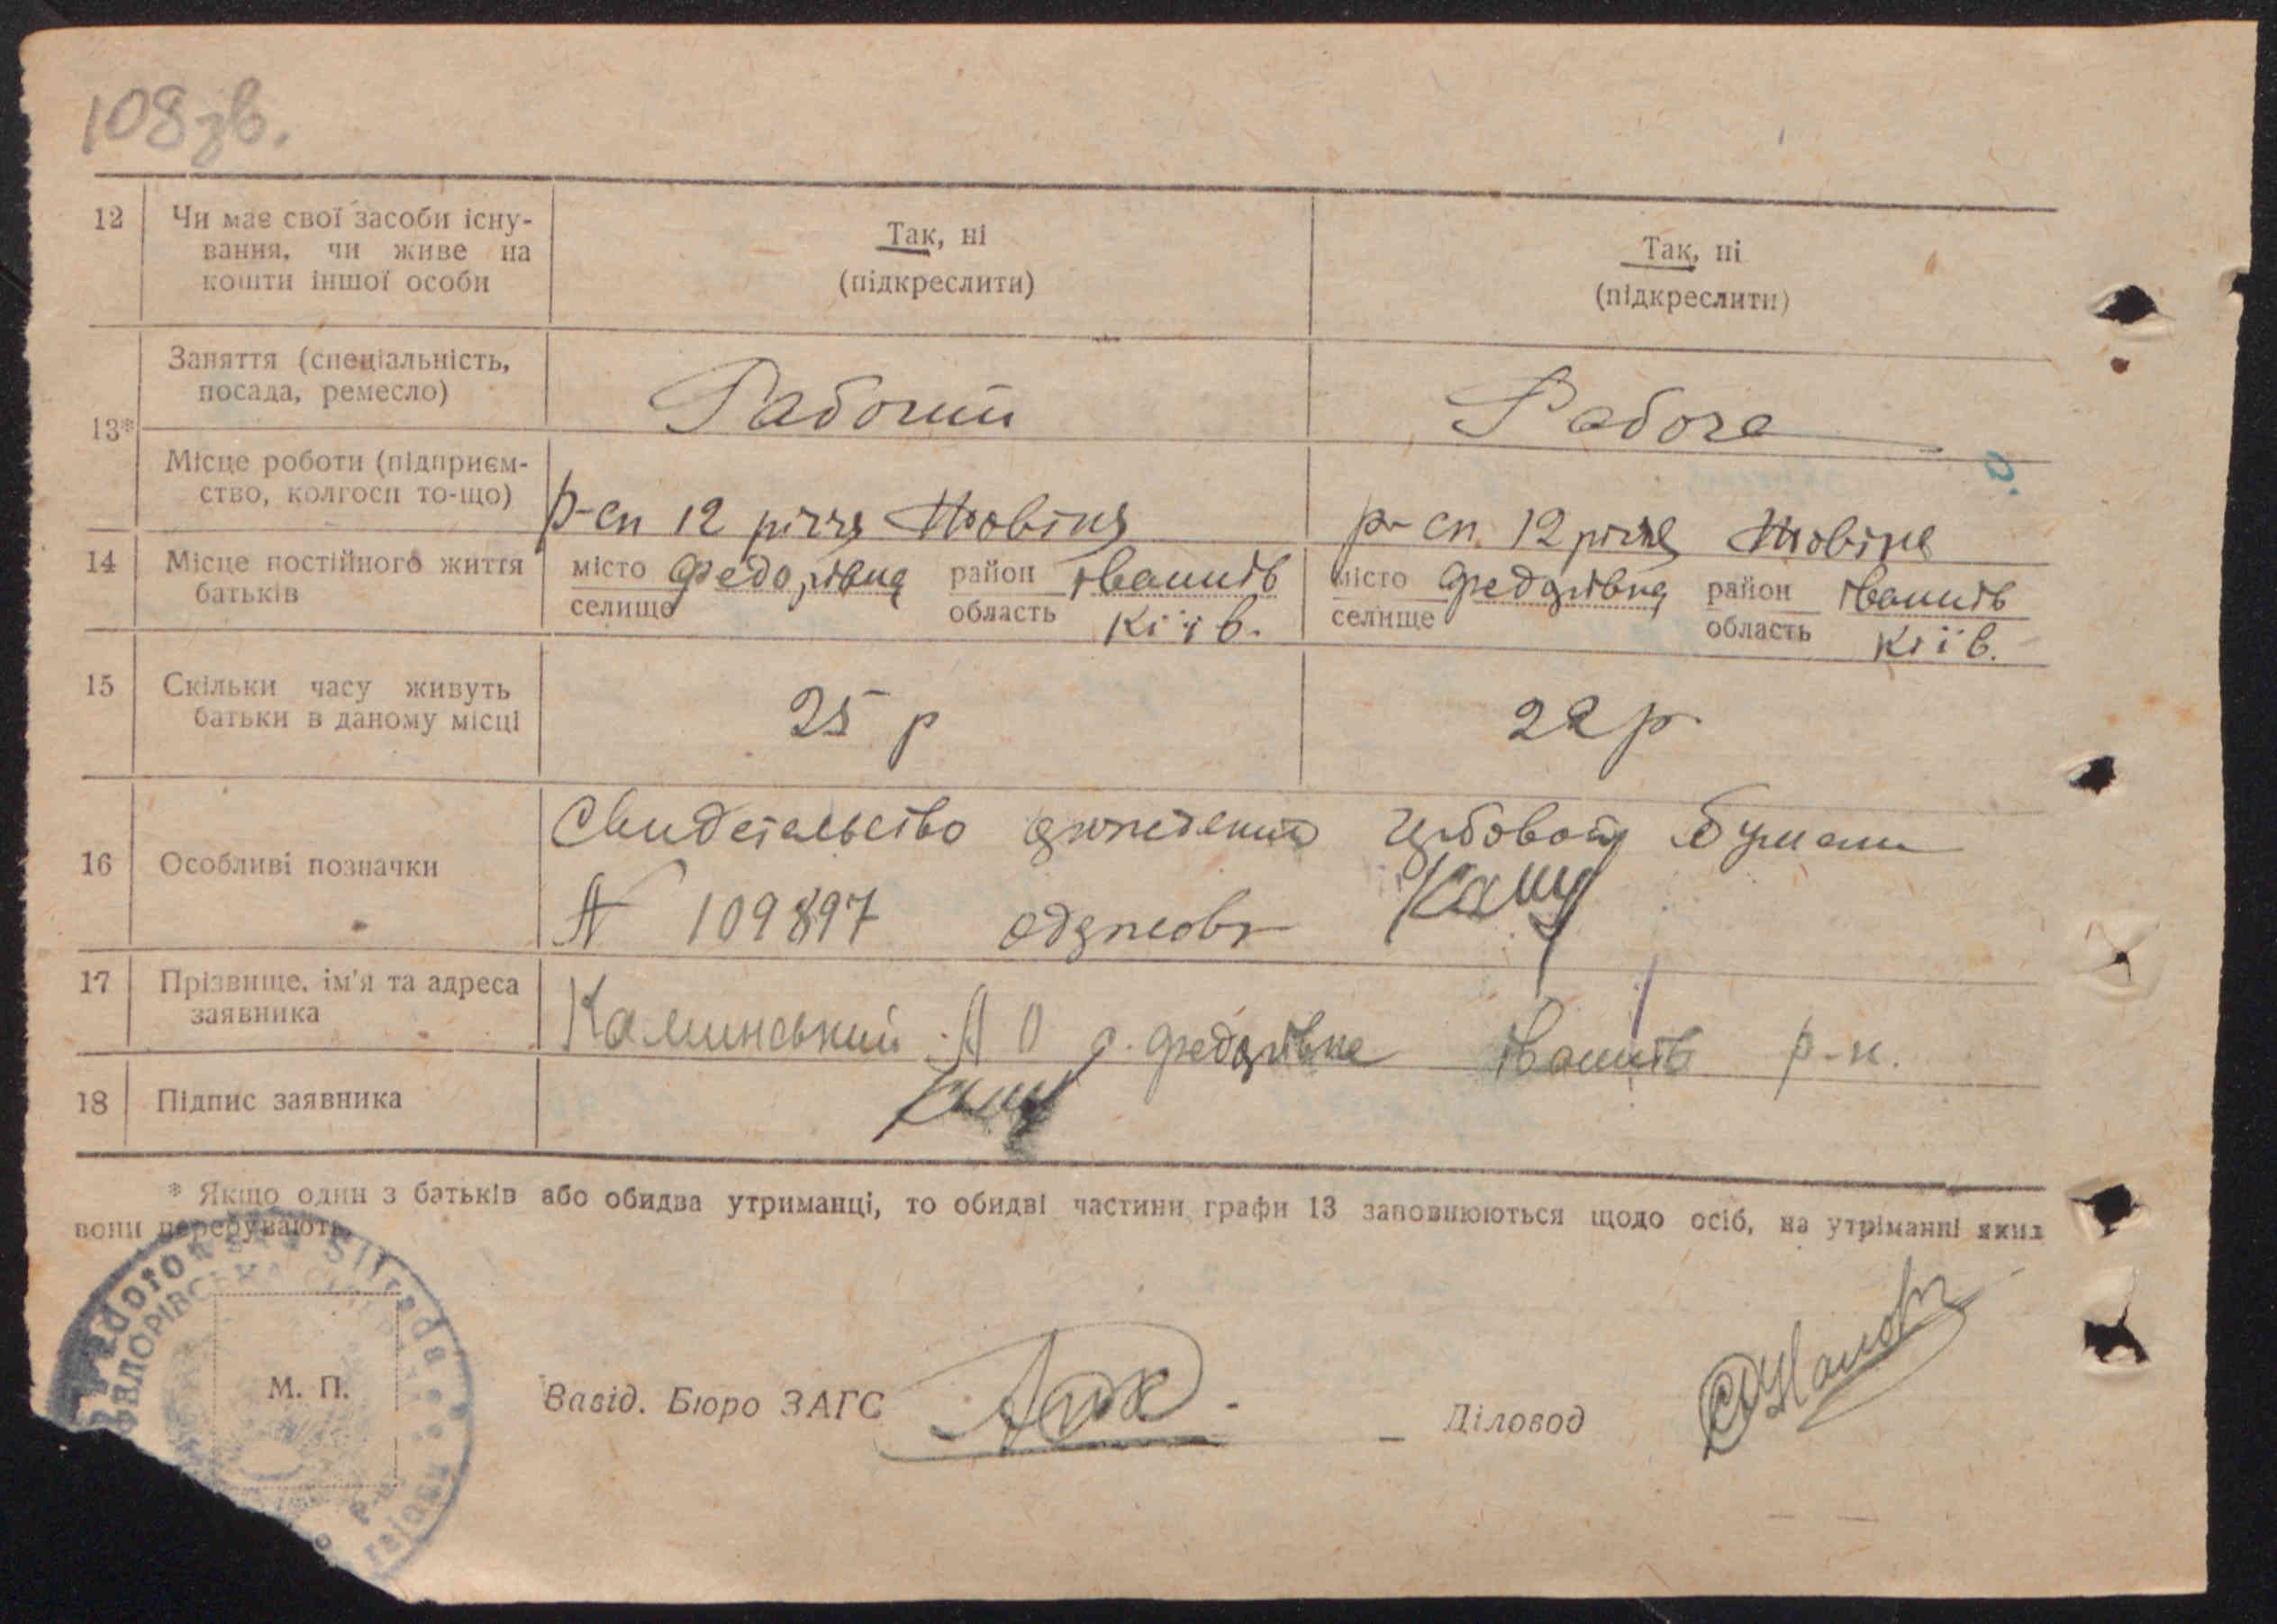 108 зв.
12 Чи має свої засоби існу- Так, ні Так, ні
вання, чи живе на (підкреслити) (підкреслити)
кошти іншої особи
13* Заняття (спеціальність, Рабочий Рабоча
посада, ремесло)
Місце роботи (підприєм-
ство, колгосп то-що) р-сп 12 річчя Жовтня р-сп. 12 річчя Жовтня
14 Місце постійного життя місто Федорівка район Іванків місто Федорівка район Іванків
батьків селище область Київ. селище область Київ.
15 Скільки часу живуть 25 р 22 р.
батьки в даному місці
16 Особливі позначки Свидетельство гербовой бумаги
№ 109897
17 Прізвище, ім'я та адреса Каминський А О с. Федорівка Іванків р-н.
заявника
18 Підпис заявника
* Якщо один з батьків або обидва утриманці, то обидві частини графи 13 заповнюються щодо осіб, на утріманні яких
вони перебувають
М. П. Завід. Бюро ЗАГС Діловод